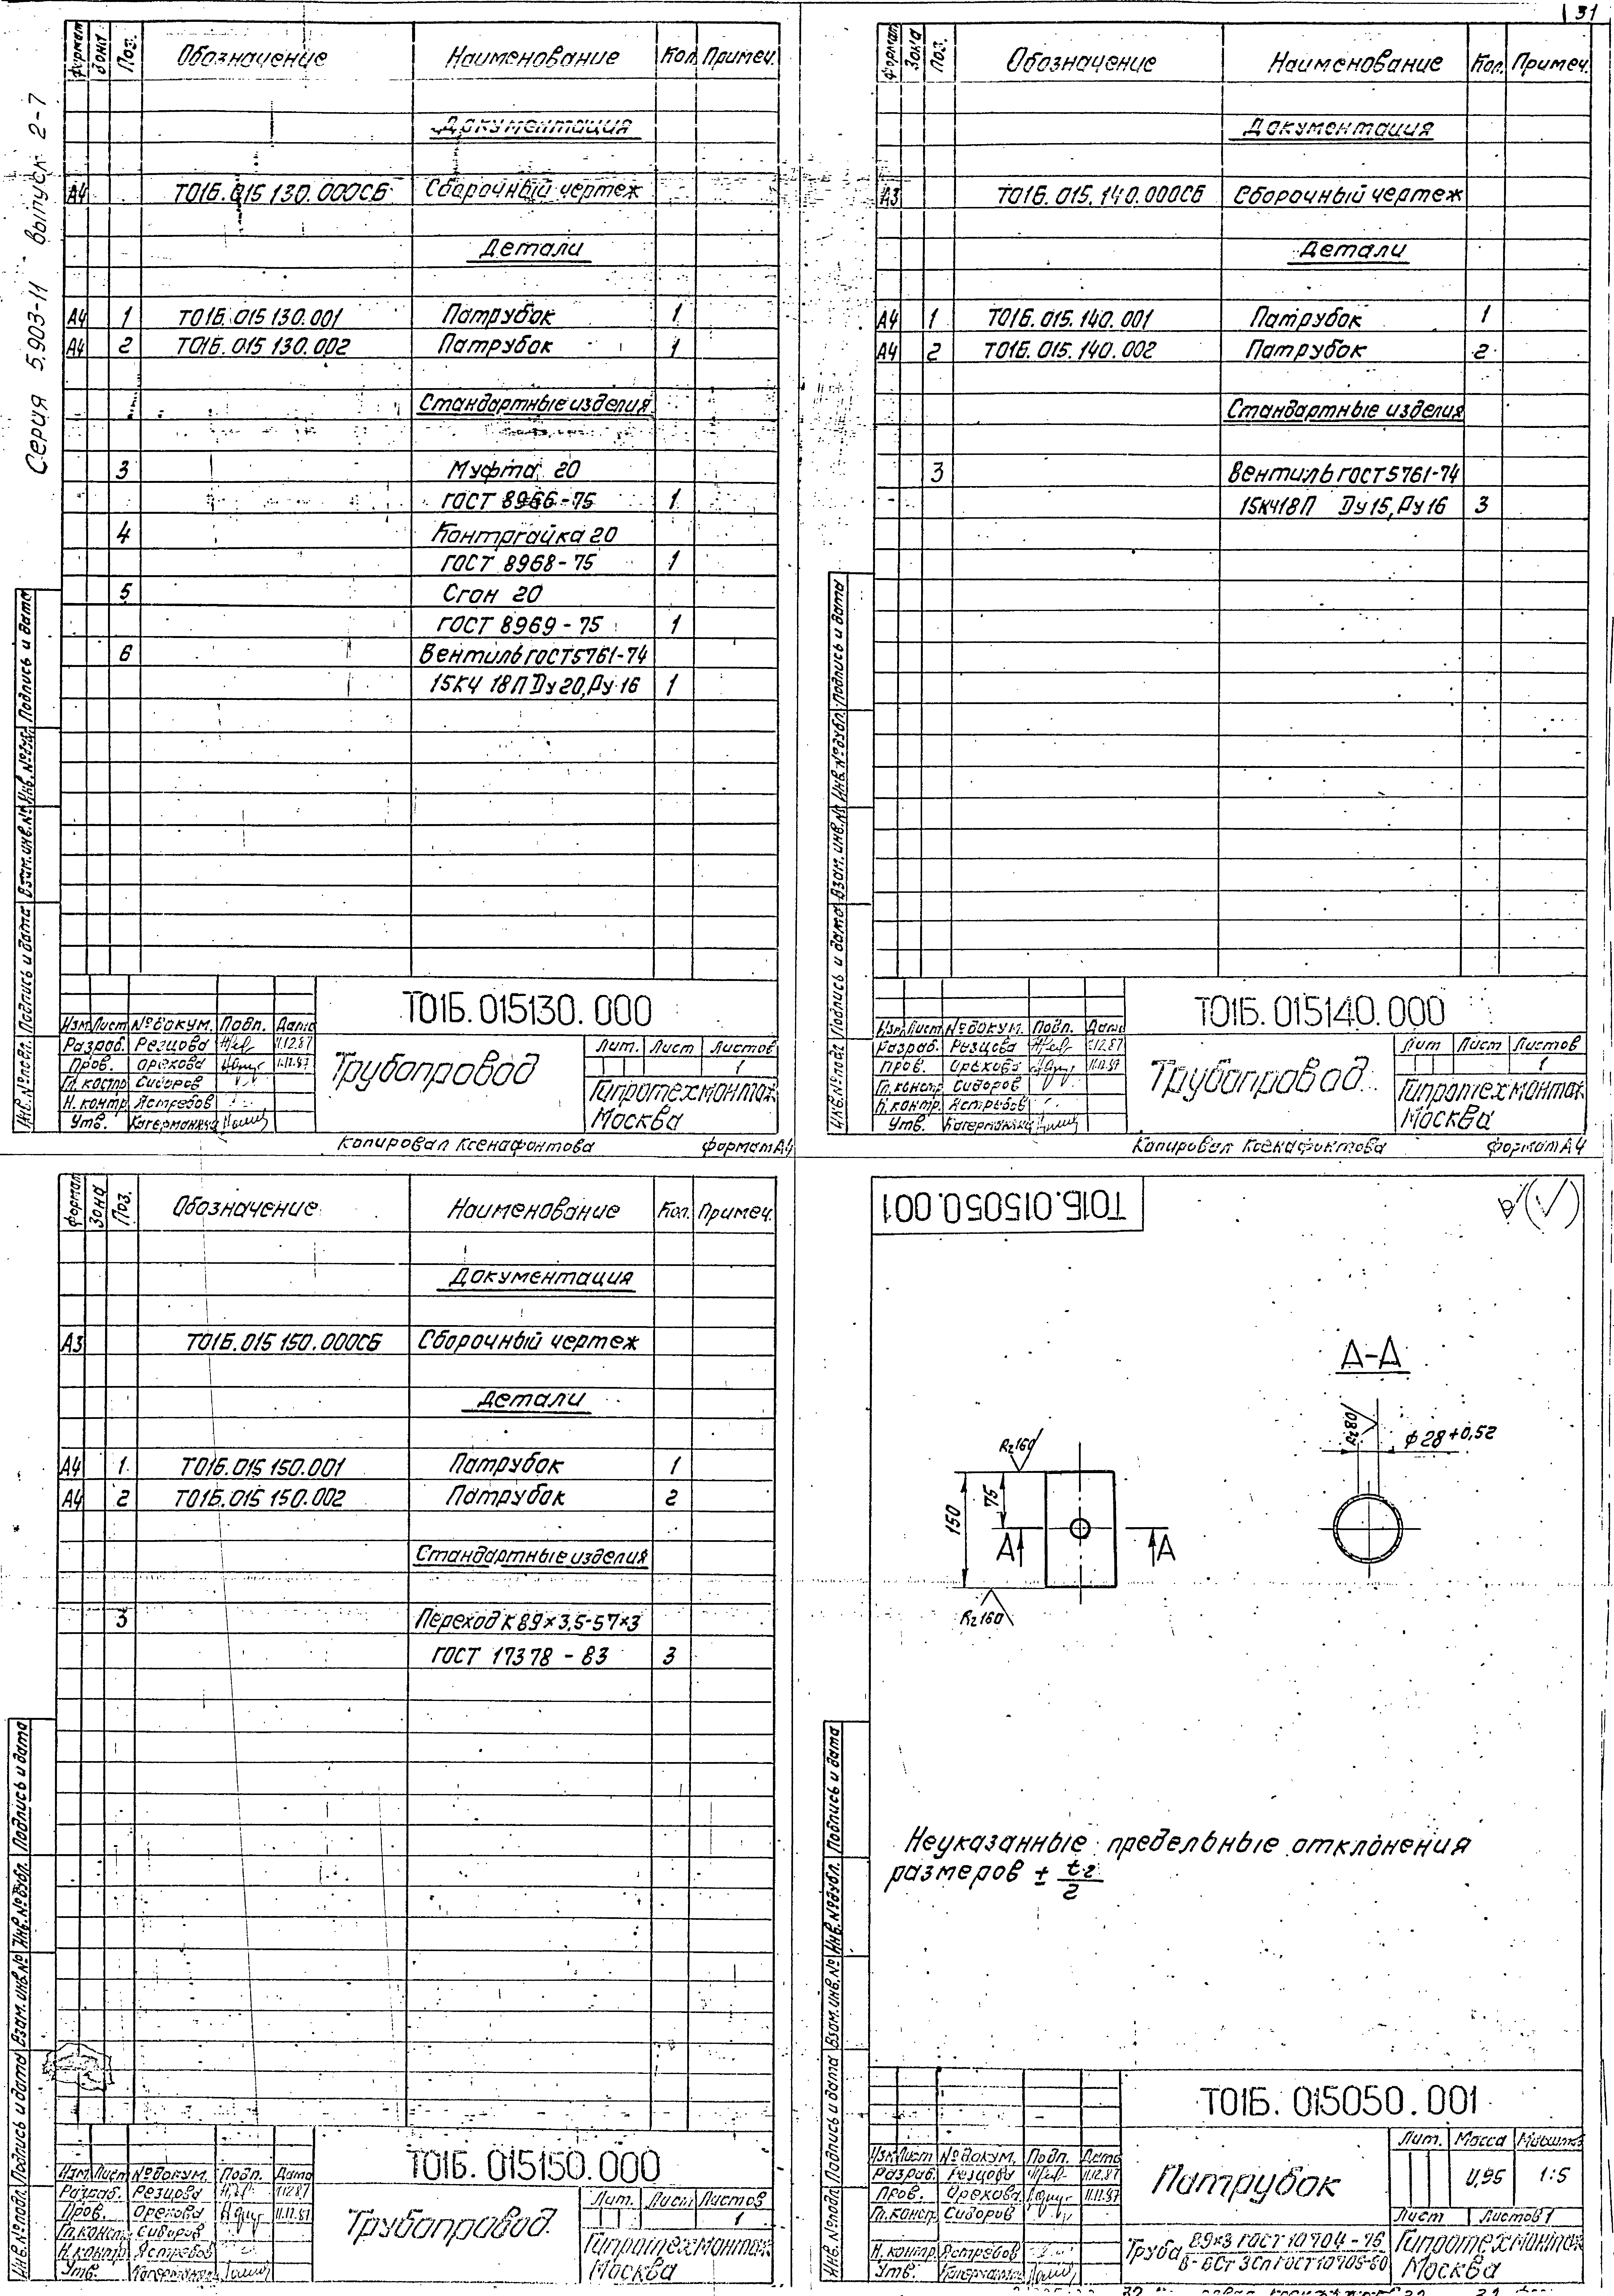 31
Серия 5.903-11 выпуск 2-7
Формат Зона Поз. Обозначение Наименование Кол. Примеч.
Документация
А4 Т01Б.015 130.000СБ Сборочный чертеж
Детали
А4 1 Т01Б.015 130.001 Патрубок 1
А4 2 Т01Б.015 130.002 Патрубок 1
Стандартные изделия
3 Муфта 20
ГОСТ 8966-75 1
4 Контргайка 20
ГОСТ 8968-75 1
5 Сгон 20
ГОСТ 8969-75 1
6 Вентиль ГОСТ5761-74
15КЧ 18П Ду20, Ру16 1
Инв.№подл. Подпись и дата Взам.инв.№ Инв.№дубл. Подпись и дата
Т01Б.015130.000
Изм. Лист №докум. Подп. Дата
Разраб. Резцова 11.12.87
Пров. Орехова 11.12.87
Гл.констр. Сидоров
Н.контр. Ястребов
Утв.
Трубопровод
Лит. Лист Листов
1
Гипротехмонтаж
Москва
Копировал Ксенафонтова формат А4
Формат Зона Поз. Обозначение Наименование Кол. Примеч.
Документация
А3 Т01Б.015.140.000СБ Сборочный чертеж
Детали
А4 1 Т01Б.015.140.001 Патрубок 1
А4 2 Т01Б.015.140.002 Патрубок 2
Стандартные изделия
3 Вентиль ГОСТ5761-74
15КЧ18П Ду15, Ру16 3
Инв.№подл. Подпись и дата Взам.инв.№ Инв.№дубл. Подпись и дата
Т01Б.015140.000
Изм. Лист №докум. Подп. Дата
Разраб. Резцова 11.12.87
Пров. Орехова 11.12.87
Гл.констр. Сидоров
Н.контр. Ястребов
Утв.
Трубопровод
Лит. Лист Листов
1
Гипротехмонтаж
Москва
Копировал Ксенафонтова формат А4
Формат Зона Поз. Обозначение Наименование Кол. Примеч.
Документация
А3 Т01Б.015 150.000СБ Сборочный чертеж
Детали
А4 1 Т01Б.015 150.001 Патрубок 1
А4 2 Т01Б.015 150.002 Патрубок 2
Стандартные изделия
3 Переход К 89×3,5-57×3
ГОСТ 17378-83 3
Инв.№подл. Подпись и дата Взам.инв.№ Инв.№дубл. Подпись и дата
Т01Б.015150.000
Изм. Лист №докум. Подп. Дата
Разраб. Резцова 11.12.87
Пров. Орехова 11.12.87
Гл.констр. Сидоров
Н.контр. Ястребов
Утв.
Трубопровод
Лит. Лист Листов
1
Гипротехмонтаж
Москва
Т01Б.015050.001
А-А
Rz80
ϕ28+0,52
Rz160
150
75
А А
Rz160
Неуказанные предельные отклонения
размеров ± t2/2
Инв.№подл. Подпись и дата Взам.инв.№ Инв.№дубл. Подпись и дата
Т01Б.015050.001
Изм. Лист №докум. Подп. Дата
Разраб. Резцова 11.12.87
Пров. Орехова 11.12.87
Гл.констр. Сидоров
Н.контр. Ястребов
Утв.
Патрубок
Лит. Масса Масштаб
0,95 1:5
Лист Листов 1
Труба 89×3 ГОСТ 10704-76
В-БСт3сп ГОСТ10705-80
Гипротехмонтаж
Москва